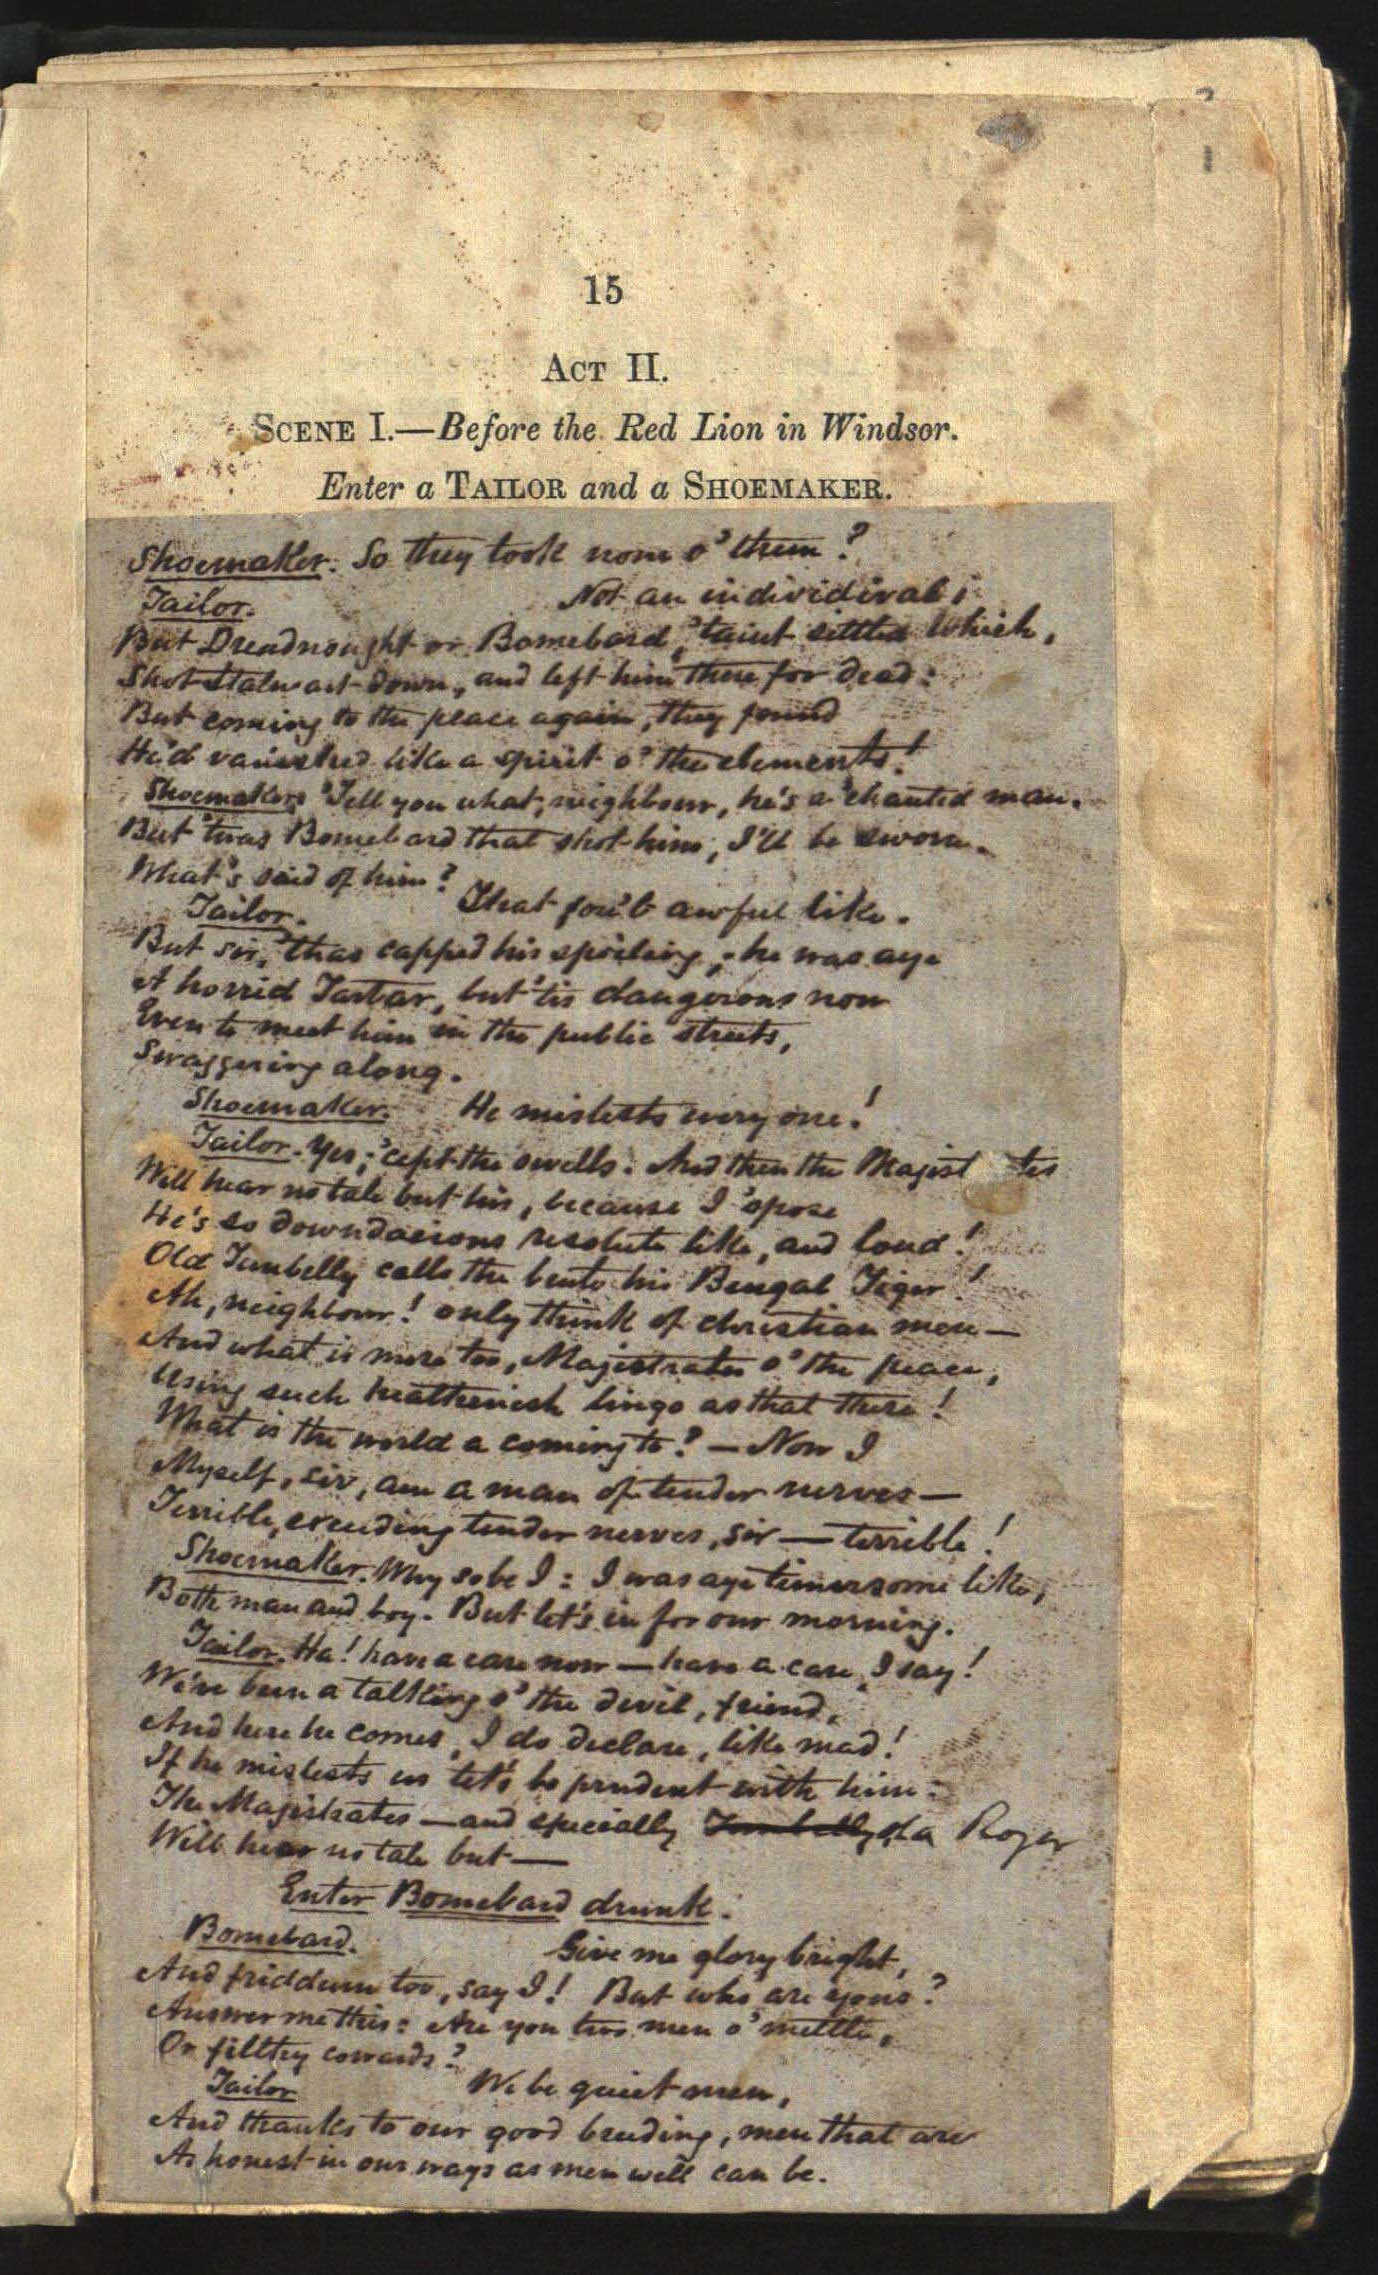 15
ACT II.
SCENE I.—Before the Red Lion in Windsor.
Enter a TAILOR and a SHOEMAKER.
Shoemaker. So they took none o' them?
Tailor. Not an individival;
But Dreadnought or Bomebard, 'taint settled which,
Shot Stalwart down, and left him there for dead:
But coming to the place again, they found
He'd vanished like a spirit o' the elements!
Shoemaker. 'Tell you what, neighbour, he's a 'chanted man.
But 'twas Bomebard that shot him, I'll be sworn.
What's said of him?
Tailor. That fou't awful like.
But sir, 'thas capped his spoiling; he was aye
A horrid Tartar, but 'tis dangerous now
Even to meet him in the public streets,
Swaggering along.
Shoemaker. He mislests every one!
Tailor. Yes; 'cept the swells. And then the Magist tes
Will hear no tale but his, because I 'spose
He's so downdacious resolute like, and loud!
Old Tunbelly calls the brute his Bengal Tiger!
Ah, neighbour! only think of christian men—
And what is more too, Magistrates o' the peace,
Using such heathenish lingo as that there!
What is the world a coming to? — Now I
Myself, sir, am a man of tender nerves—
Terrible, exceeding tender nerves, sir — terrible!
Shoemaker. Why so be I: I was aye timersome like,
Both man and boy. But let's in for our morning.
Tailor. Ha! have a care now — have a care, I say!
We've been a talking o' the devil, friend,
And here he comes, I do declare, like mad!
If he mislests us let's be prudent with him:
The Magistrates — and specially Tunbelly Roger
Will hear no tale but —
Enter Bomebard drunk.
Bomebard. Give me glory bright,
And friddum too, say I! But who are yous?
Answer me this: Are you two men o' mettle,
Or filthy cowards?
Tailor We be quiet men,
And thanks to our good breeding, men that are
As honest in our ways as men well can be.